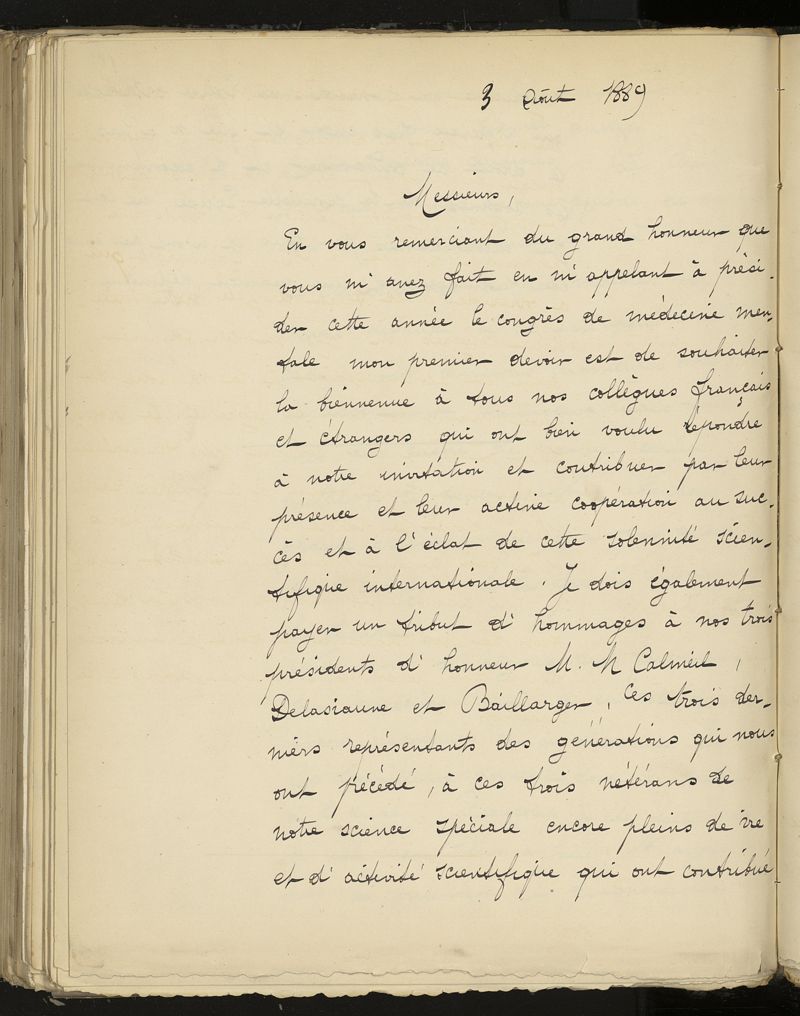 3 Août 1889
Messieurs,
En vous remerciant du grand honneur que
vous m'avez fait en m'appelant à prési-
der cette année le congrès de médecine men-
tale mon premier devoir est de souhaiter
la bienvenue à tous nos collègues français
et étrangers qui ont bien voulu répondre
à notre invitation et contribuer par leur
présence et leur active coopération au suc-
cès et à l'éclat de cette solennité scien-
tifique internationale. Je dois également
payer un tribut d'hommages à nos trois
présidents d'honneur M. M Calmeil,
Delasiauve et Baillarger, ces trois der-
niers représentants des générations qui nous
ont précédé, à ces trois vétérans de
notre science spéciale encore pleins de vie
et d'activité scientifique qui ont contribué